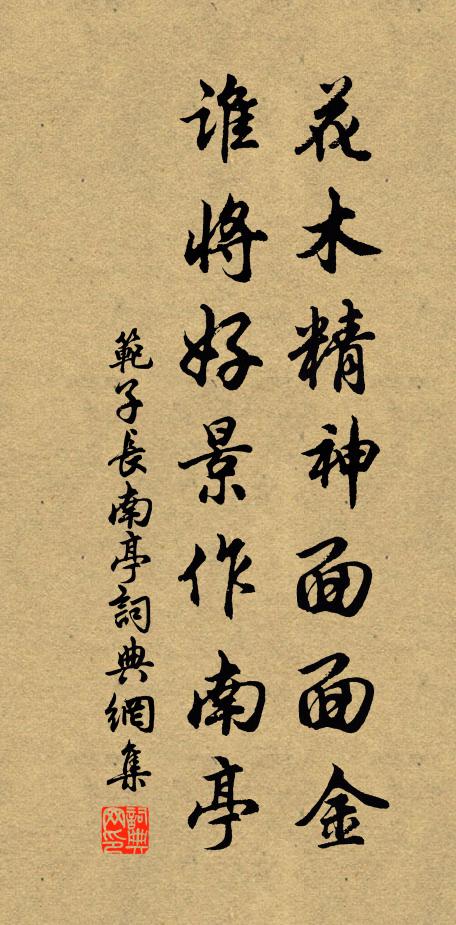 花木精神面面金
誰將好景作南亭
範子長南亭詞典網集
詞典网印